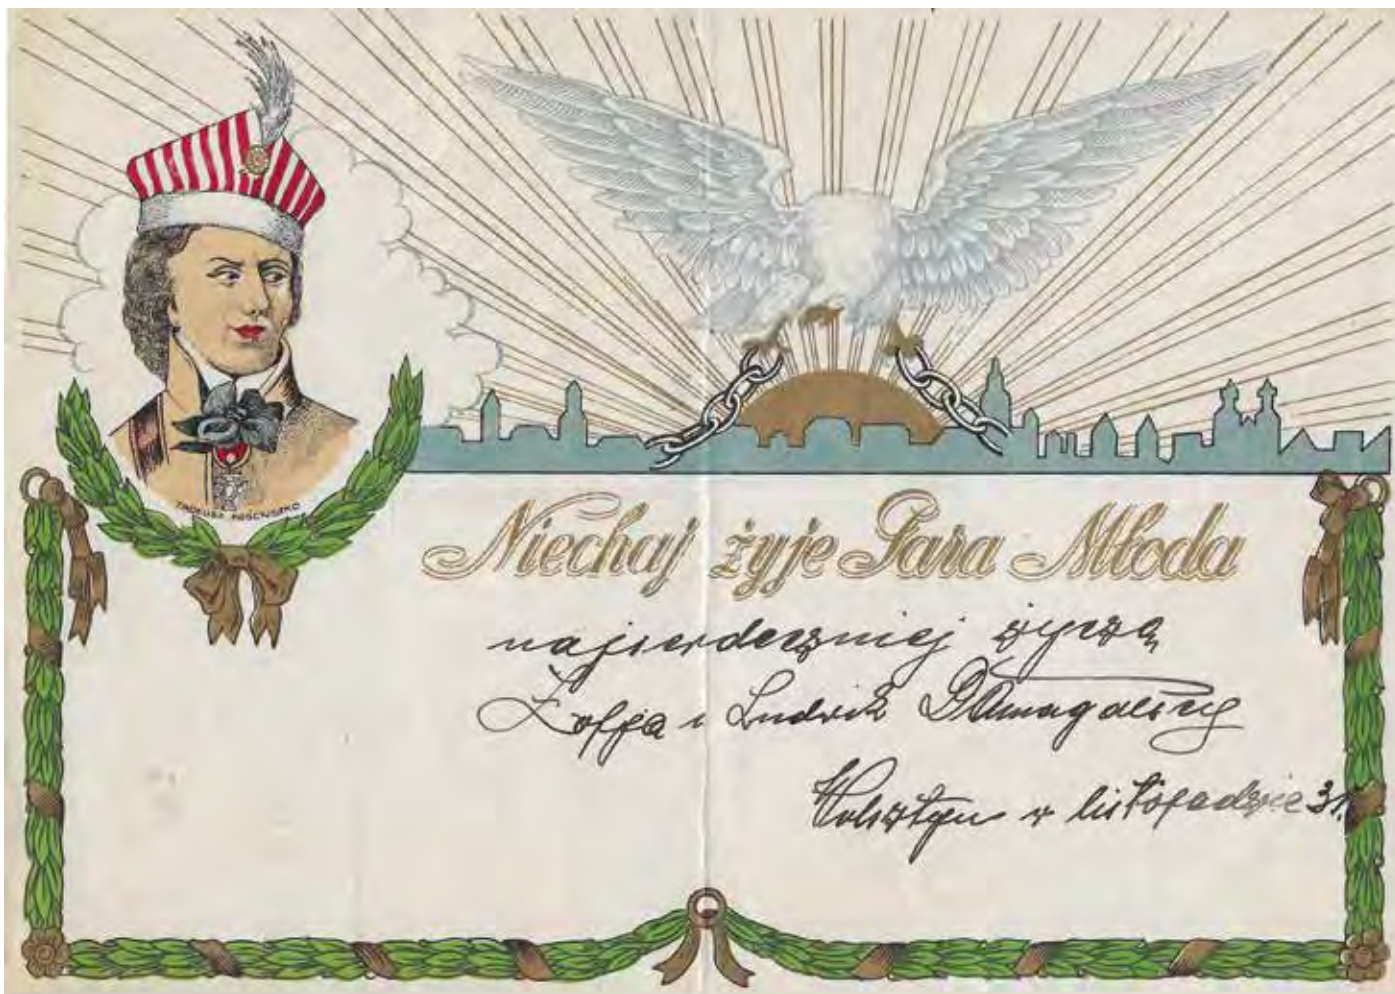 TADEUSZ KOŚCIUSZKO
Niechaj żyje Para Młoda
najserdeczniej życzą
Zofja i Ludwik Domagalscy
Wolsztyn w listopadzie 31.